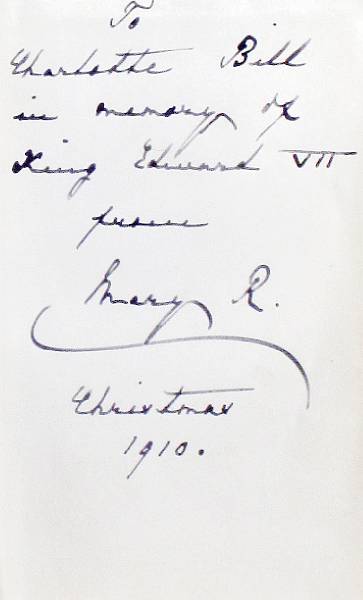 To
Charlotte Bill
in memory of
King Edward VII
from
Mary R.
Christmas
1910.